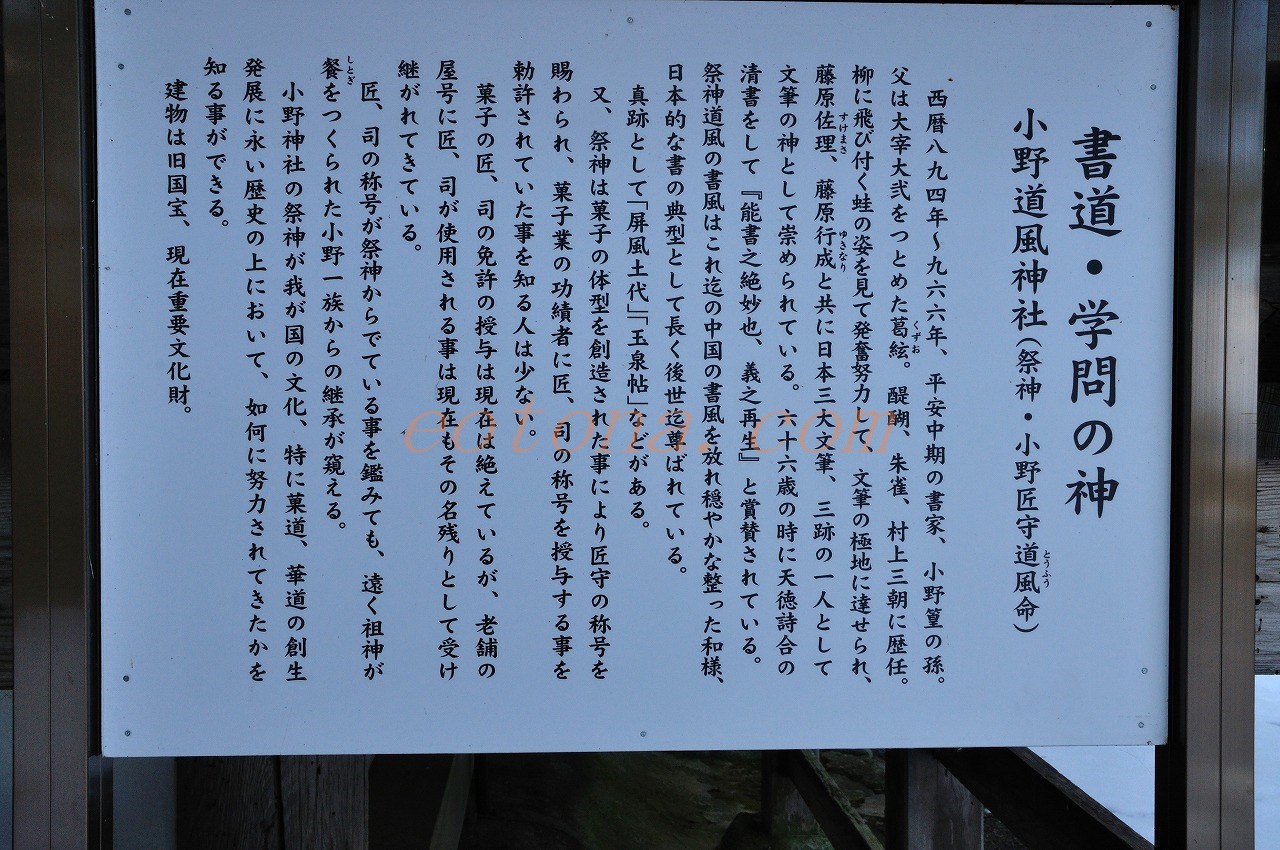 書道・学問の神
小野道風神社(祭神・小野匠守道風命)
とうふう
西暦八九四年〜九六六年、平安中期の書家、小野篁の孫。
父は大宰大弐をつとめた葛絃。醍醐、朱雀、村上三朝に歴任。
くずお
柳に飛び付く蛙の姿を見て発奮努力して、文筆の極地に達せられ、
藤原佐理、藤原行成と共に日本三大文筆、三跡の一人として
すけまさ
ゆきなり
文筆の神として崇められている。六十六歳の時に天徳詩合の
清書をして『能書之絶妙也、義之再生』と賞賛されている。
祭神道風の書風はこれ迄の中国の書風を放れ穏やかな整った和様、
日本的な書の典型として長く後世迄尊ばれている。
真跡として「屏風土代」「玉泉帖」などがある。
又、祭神は菓子の体型を創造された事により匠守の称号を
賜わられ、菓子業の功績者に匠、司の称号を授与する事を
勅許されていた事を知る人は少ない。
菓子の匠、司の免許の授与は現在は絶えているが、老舗の
屋号に匠、司が使用される事は現在もその名残りとして受け
継がれてきている。
匠、司の称号が祭神からでている事を鑑みても、遠く祖神が
餐をつくられた小野一族からの継承が窺える。
しとぎ
小野神社の祭神が我が国の文化、特に菓道、華道の創生
発展に永い歴史の上において、如何に努力されてきたかを
知る事ができる。
建物は旧国宝、現在重要文化財。
eotona.com